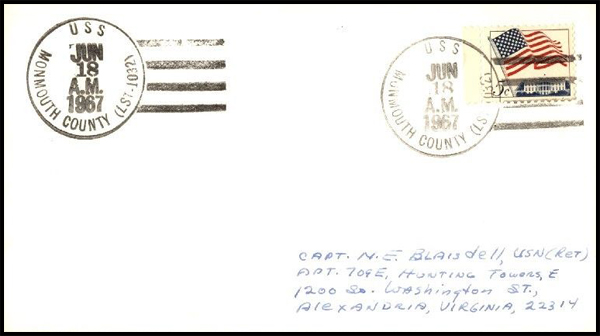 USS
JUN
18
A.M.
1967
MONMOUTH COUNTY (LST-1032)
USS
JUN
18
A.M.
1967
MONMOUTH COUNTY (LST-1032)
5c
CAPT. M. E. BLAISdELL, USN (RET)
APT. 709E, HUNTING TOWERS, E
1200 So. WASHINGTON ST.,
ALEXANDRIA, VIRGINIA, 22314